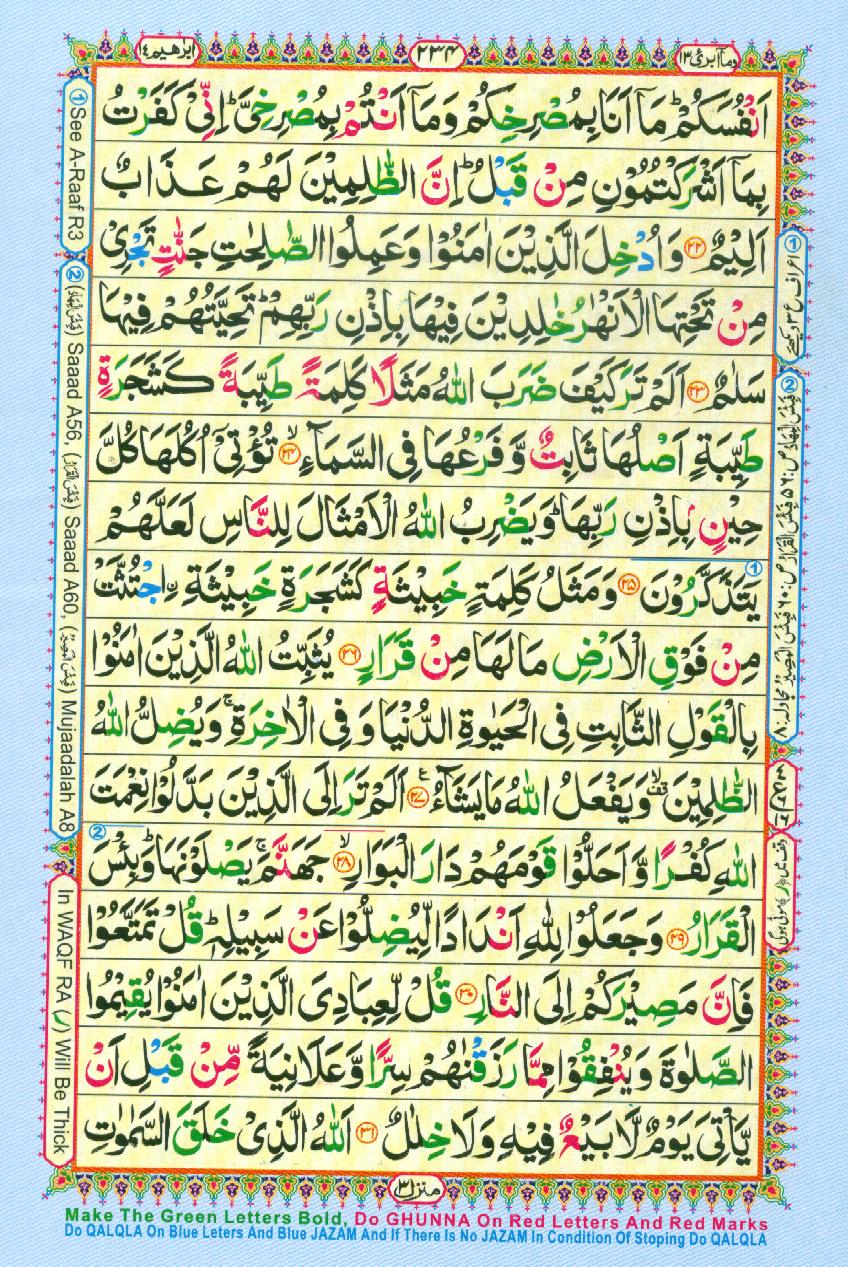 ابرٰهيم ١٤
٢٣٤
ومآ ابرئ ١٣
اَنْفُسَكُمْ ؕ مَاۤ اَنَا بِمُصْرِخِكُمْ وَمَاۤ اَنْتُمْ بِمُصْرِخِیَّ ؕ اِنِّیْ كَفَرْتُ
بِمَاۤ اَشْرَكْتُمُوْنِ مِنْ قَبْلُ ؕ اِنَّ الظّٰلِمِیْنَ لَهُمْ عَذَابٌ
اَلِیْمٌ ۝۲۲ وَاُدْخِلَ الَّذِیْنَ اٰمَنُوْا وَعَمِلُوا الصّٰلِحٰتِ جَنّٰتٍ تَجْرِیْ
مِنْ تَحْتِهَا الْاَنْهٰرُ خٰلِدِیْنَ فِیْهَا بِاِذْنِ رَبِّهِمْ ؕ تَحِیَّتُهُمْ فِیْهَا
سَلٰمٌ ۝۲۳ اَلَمْ تَرَ كَیْفَ ضَرَبَ اللّٰهُ مَثَلًا كَلِمَةً طَیِّبَةً كَشَجَرَةٍ
طَیِّبَةٍ اَصْلُهَا ثَابِتٌ وَّ فَرْعُهَا فِی السَّمَآءِ ۙ۝۲۴ تُؤْتِیْۤ اُكُلَهَا كُلَّ
حِیْنٍۭ بِاِذْنِ رَبِّهَا ؕ وَیَضْرِبُ اللّٰهُ الْاَمْثَالَ لِلنَّاسِ لَعَلَّهُمْ
یَتَذَكَّرُوْنَ ۝۲۵ وَمَثَلُ كَلِمَةٍ خَبِیْثَةٍ كَشَجَرَةٍ خَبِیْثَةِ ِ۟اجْتُثَّتْ
مِنْ فَوْقِ الْاَرْضِ مَا لَهَا مِنْ قَرَارٍ ۝۲۶ یُثَبِّتُ اللّٰهُ الَّذِیْنَ اٰمَنُوْا
بِالْقَوْلِ الثَّابِتِ فِی الْحَیٰوةِ الدُّنْیَا وَ فِی الْاٰخِرَةِ ۚ وَیُضِلُّ اللّٰهُ
الظّٰلِمِیْنَ ۙ۫ وَیَفْعَلُ اللّٰهُ مَا یَشَآءُ ۝۲۷ ع اَلَمْ تَرَ اِلَی الَّذِیْنَ بَدَّلُوْا نِعْمَتَ
اللّٰهِ كُفْرًا وَّ اَحَلُّوْا قَوْمَهُمْ دَارَ الْبَوَارِ ۙ۝۲۸ جَهَنَّمَ ۚ یَصْلَوْنَهَا ؕ وَبِئْسَ
الْقَرَارُ ۝۲۹ وَجَعَلُوْا لِلّٰهِ اَنْدَادًا لِّیُضِلُّوْا عَنْ سَبِیْلِهٖ ؕ قُلْ تَمَتَّعُوْا
فَاِنَّ مَصِیْرَكُمْ اِلَی النَّارِ ۝۳۰ قُلْ لِّعِبَادِیَ الَّذِیْنَ اٰمَنُوْا یُقِیْمُوا
الصَّلٰوةَ وَیُنْفِقُوْا مِمَّا رَزَقْنٰهُمْ سِرًّا وَّعَلَانِیَةً مِّنْ قَبْلِ اَنْ
یَّاْتِیَ یَوْمٌ لَّا بَیْعٌ فِیْهِ وَلَا خِلٰلٌ ۝۳۱ اَللّٰهُ الَّذِیْ خَلَقَ السَّمٰوٰتِ
منزل ٣
① See A-Raaf R3
② (فَبِئْسَ الْمِهَادُ) Saaad A56, (فَبِئْسَ الْقَرَارُ) Saaad A60, (فَبِئْسَ الْمَصِيْرُ) Mujaadalah A8
In WAQF RA (ر) Will Be Thick
Make The Green Letters Bold, Do GHUNNA On Red Letters And Red Marks
Do QALQLA On Blue Leters And Blue JAZAM And If There Is No JAZAM In Condition Of Stoping Do QALQLA